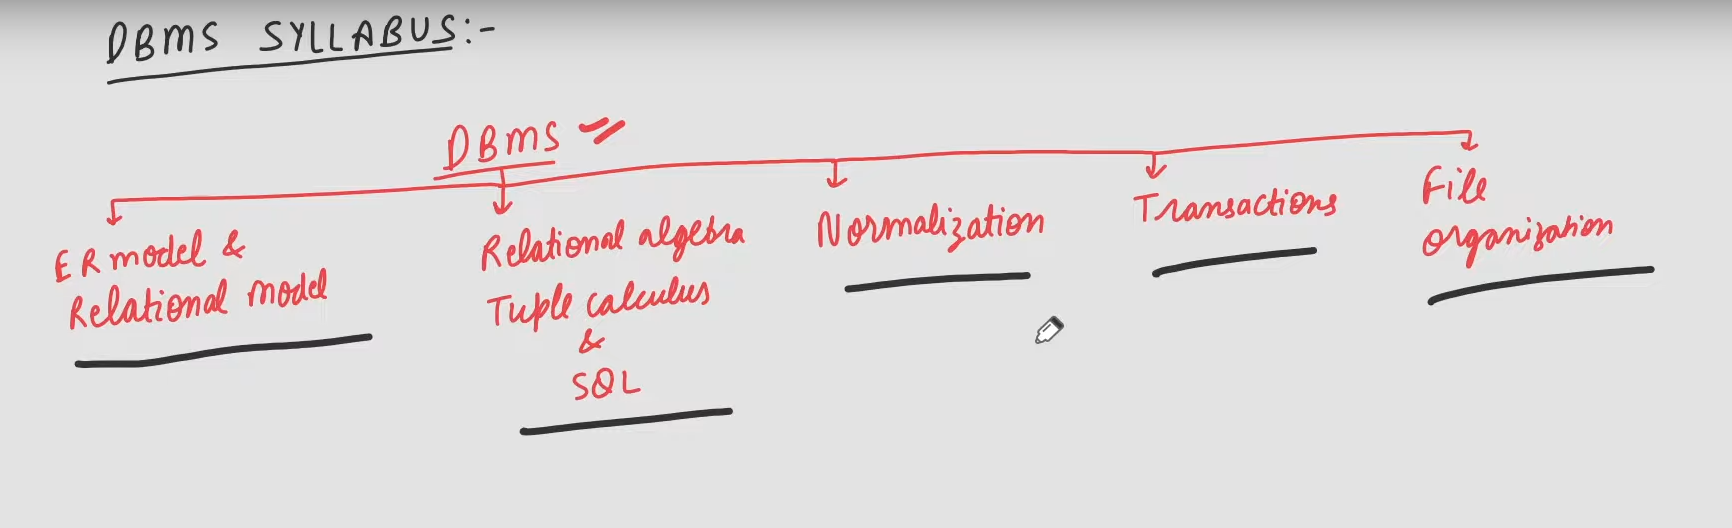 DBMS SYLLABUS:-
DBMS
ER model &
Relational model
Relational algebra
Tuple calculus
&
SQL
Normalization
Transactions
File
organization